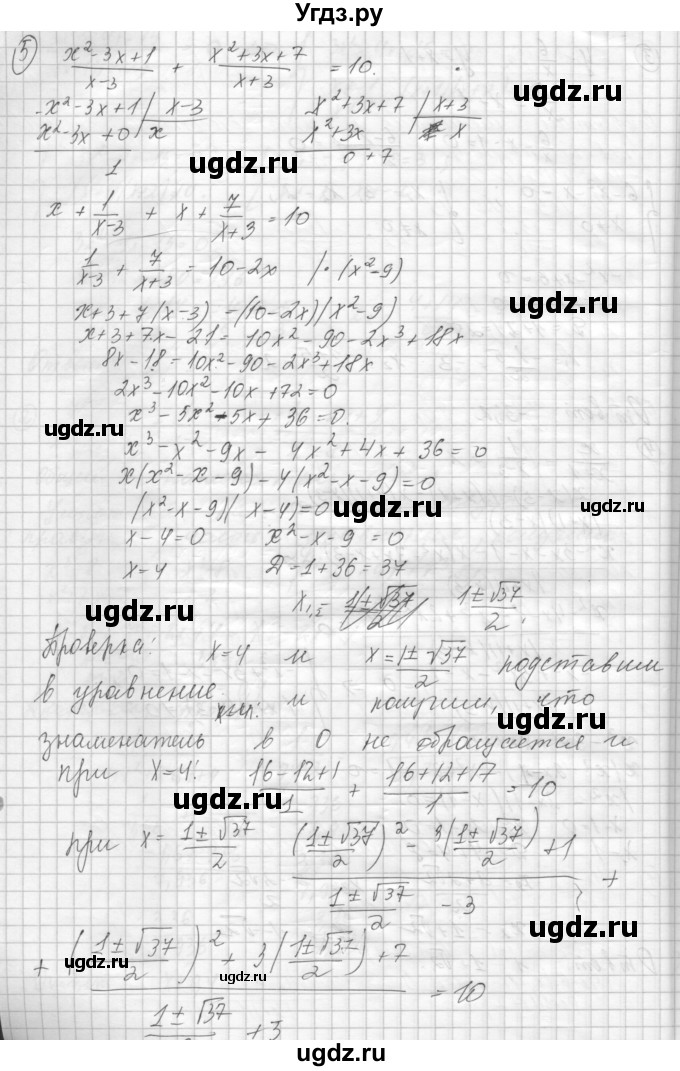 Угдз.ру
5) (x²-3x+1)/(x-3) + (x²+3x+7)/(x+3) = 10.
ugdz.ru
-x²-3x+1 | x-3        x²+3x+7 | x+3
x²-3x+0 | x        x²+3x | x
1        0+7
ugdz.ru ugdz.ru
x + 1/(x-3) + x + 7/(x+3) = 10
1/(x-3) + 7/(x+3) = 10-2x  | · (x²-9)
ugdz.ru
x+3+7(x-3) = (10-2x)(x²-9)
x+3+7x-21 = 10x²-90-2x³+18x
8x-18 = 10x²-90-2x³+18x
2x³-10x²-10x+72=0
x³-5x²-5x+36=0.
ugdz.ru
ugdz.ru
x³-x²-9x-4x²+4x+36=0
x(x²-x-9)-4(x²-x-9)=0
(x²-x-9)(x-4)=0
ugdz.ru ugdz.ru
x-4=0        x²-x-9=0
x=4        Д=1+36=37
x₁,₂= (1±√37)/2 (1±√37)/2.
ugdz.ru
Проверка: x=4 и x=(1±√37)/2 подставим
в уравнение и получим, что
ugdz.ru
знаменатель в 0 не обращается и
при x=4: (16-12+1)/1 + (16+12+17)/1 = 10
ugdz.ru
при x=(1±√37)/2 (((1±√37)/2)² - 3((1±√37)/2) + 1)/((1±√37)/2 - 3) +
ugdz.ru
+ (((1±√37)/2)² + 3((1±√37)/2) + 7)/((1±√37)/2 + 3) = 10
ugdz.ru ugdz.ru
ugdz.ru